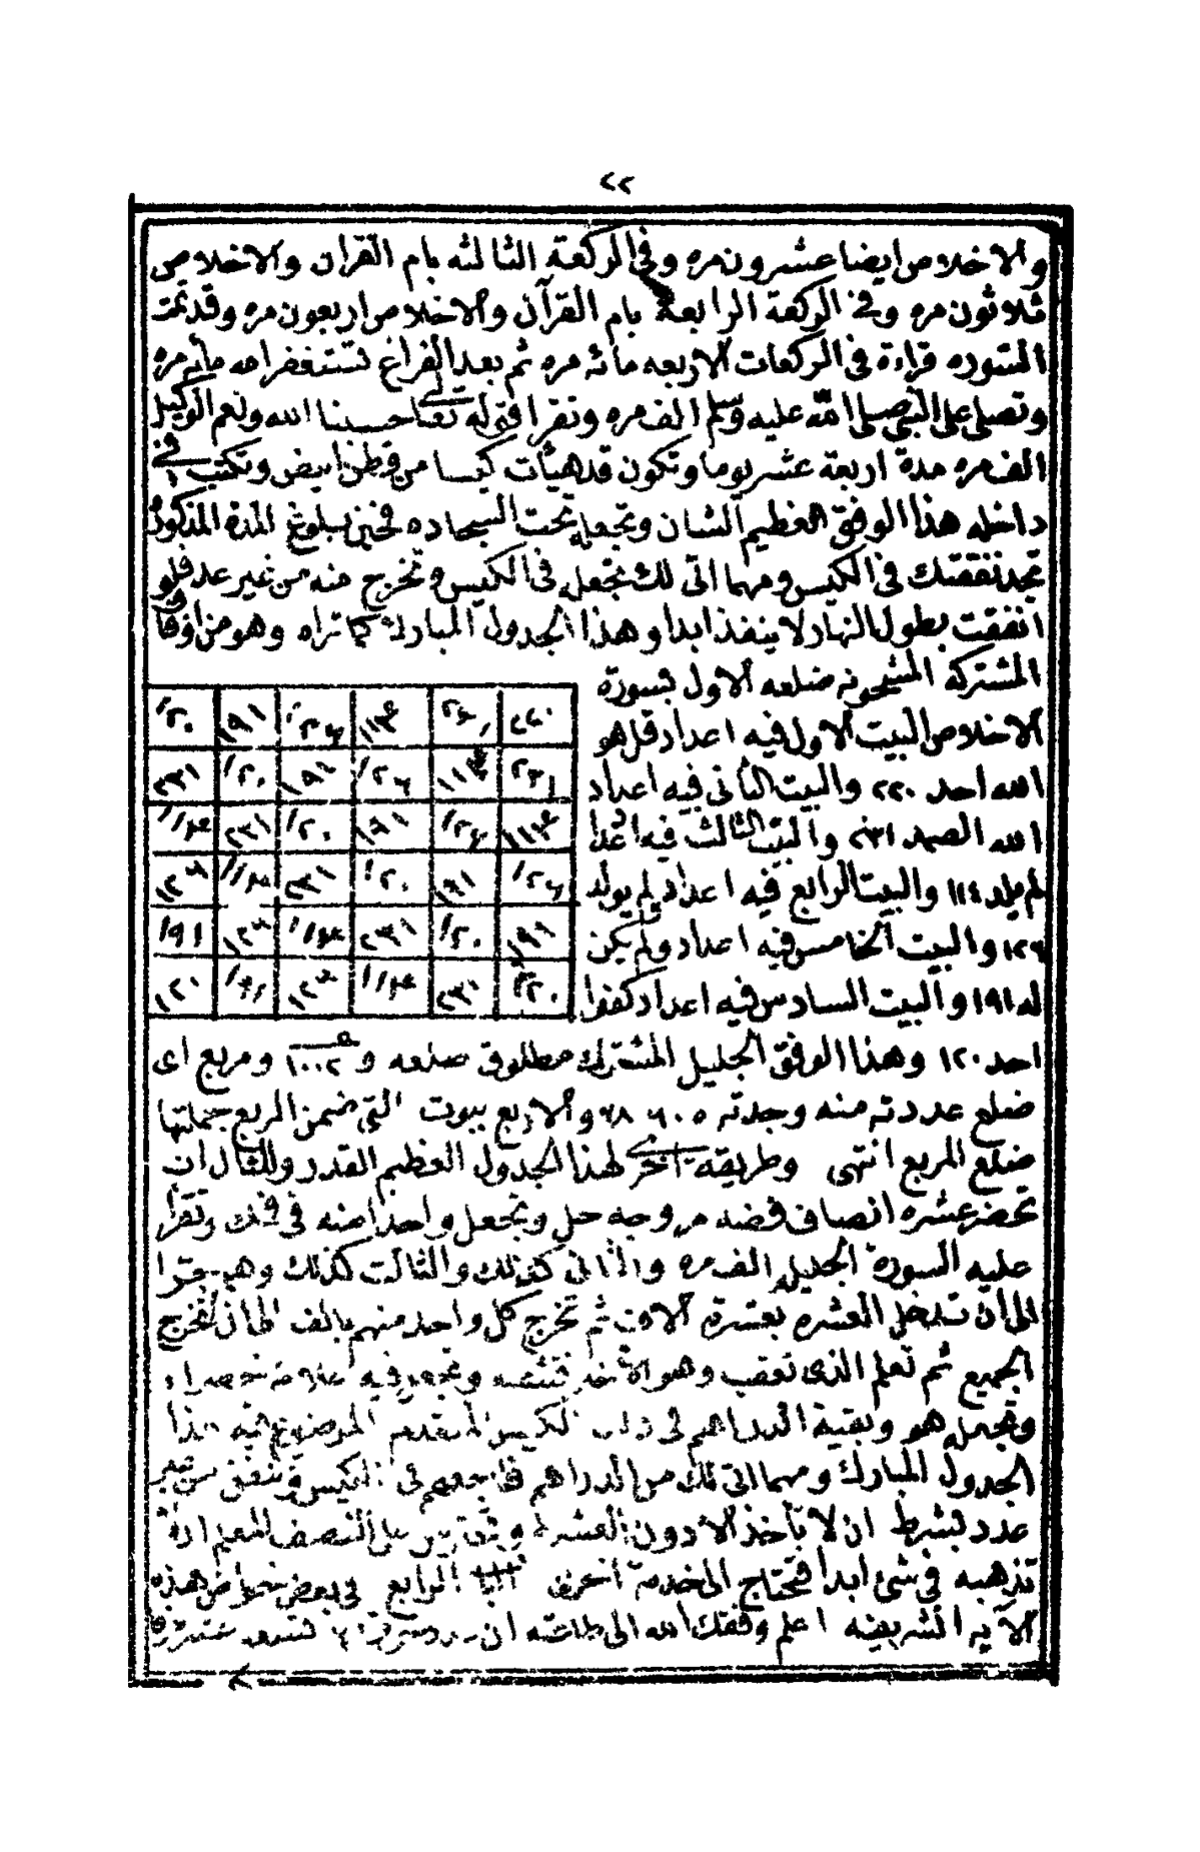 ٢٢
والاخلاص ايضا عشرون مره وفي الركعة الثالثه بام القران والاخلاص
ثلاثون مره وفي الركعة الرابعة بام القرآن والاخلاص اربعون مره وقد تمت
السوره قراءة في الركعات الاربعه مائه مره ثم بعد الفراغ تستغفر الله مايه مره
وتصلي على النبي صلى الله عليه وسلم الف مره وتقرا قوله تعالى حسبنا الله ونعم الوكيل
الف مره مدة اربعة عشر يوما وتكون قد هيأت كيسا من قطن ابيض وتكتب في
داخله هذا الوفق العظيم الشان وتجعله تحت السجاده فحين بلوغ المدة المذكورة
تجد نفقتك في الكيس ومهما اتى لك تجعله في الكيس وتخرج منه من غير عد فلو
انفقت بطول النهار لا ينفذ ابدا وهذا الجدول المبارك كما تراه وهو من اوفاق
المشتركة المشحونه ضلعه الاول بسورة
الاخلاص البيت الاول فيه اعداد قل هو
الله احد ٢٢٠ والبيت الثاني فيه اعداد
الله الصمد ٢٣١ والبيت الثالث فيه اعدا
لم يلد ١١٤ والبيت الرابع فيه اعداد ولم يولد
١٢٦ والبيت الخامس فيه اعداد ولم يكن
له ١٩١ والبيت السادس فيه اعداد كفوا
احد ١٢٠ وهذا الوفق الجليل المشترك مطلوق ضلعه و ١٠٠٢ ومربع اى
٢٢٠ ٢٣١ ١١٤ ١٢٦ ١٩١ ١٢٠
٢٣١ ١١٤ ١٢٦ ١٩١ ١٢٠ ٢٣١
١١٤ ١٢٦ ١٩١ ١٢٠ ٢٣١ ١١٤
١٢٦ ١٩١ ١٢٠ ٢٣١ ١١٤ ١٢٦
١٩١ ١٢٠ ٢٣١ ١١٤ ١٢٦ ١٩١
٢٢٠ ٢٣١ ١١٤ ١٢٦ ١٩١ ١٢٠
ضلع عددته منه وجدته ٦٠٥ ٦٨ والاربع بيوت التي ضمن المربع جملتها
ضلع المربع انتهى وطريقه اخرى لهذا الجدول العظيم القدر والمثال ان
تحضر عشره انصاف فضه من وجه حل وتجعل واحدا منه في فمك وتقرأ
عليه السورة الجليله الف مره والثاني كذلك والثالث كذلك وهم جرا
الى ان تدخل العشره بعشرة الاف ثم تخرج كل واحد منهم بالف الى ان تخرج
الجميع ثم تعلم الذى تعقب وهو الآخر فتثقبه وتجعل فيه علامة خضراء
وتجعله هو وبقية الدراهم في ذلك الكيس المتقدم الموضوع فيه هذا
الجدول المبارك ومهما اتى لك من الدراهم فاجعلهم في الكيس وتنفق من غير
عدد بشرط ان لا تأخذ الا دون العشرة على النصف المعلم
تذهبه في شئ ابدا فتحتاج الى خدمة اخرى الباب الرابع في بعض خواص هذه
الآيه الشريفه اعلم وفقك الله الى طاعته ان